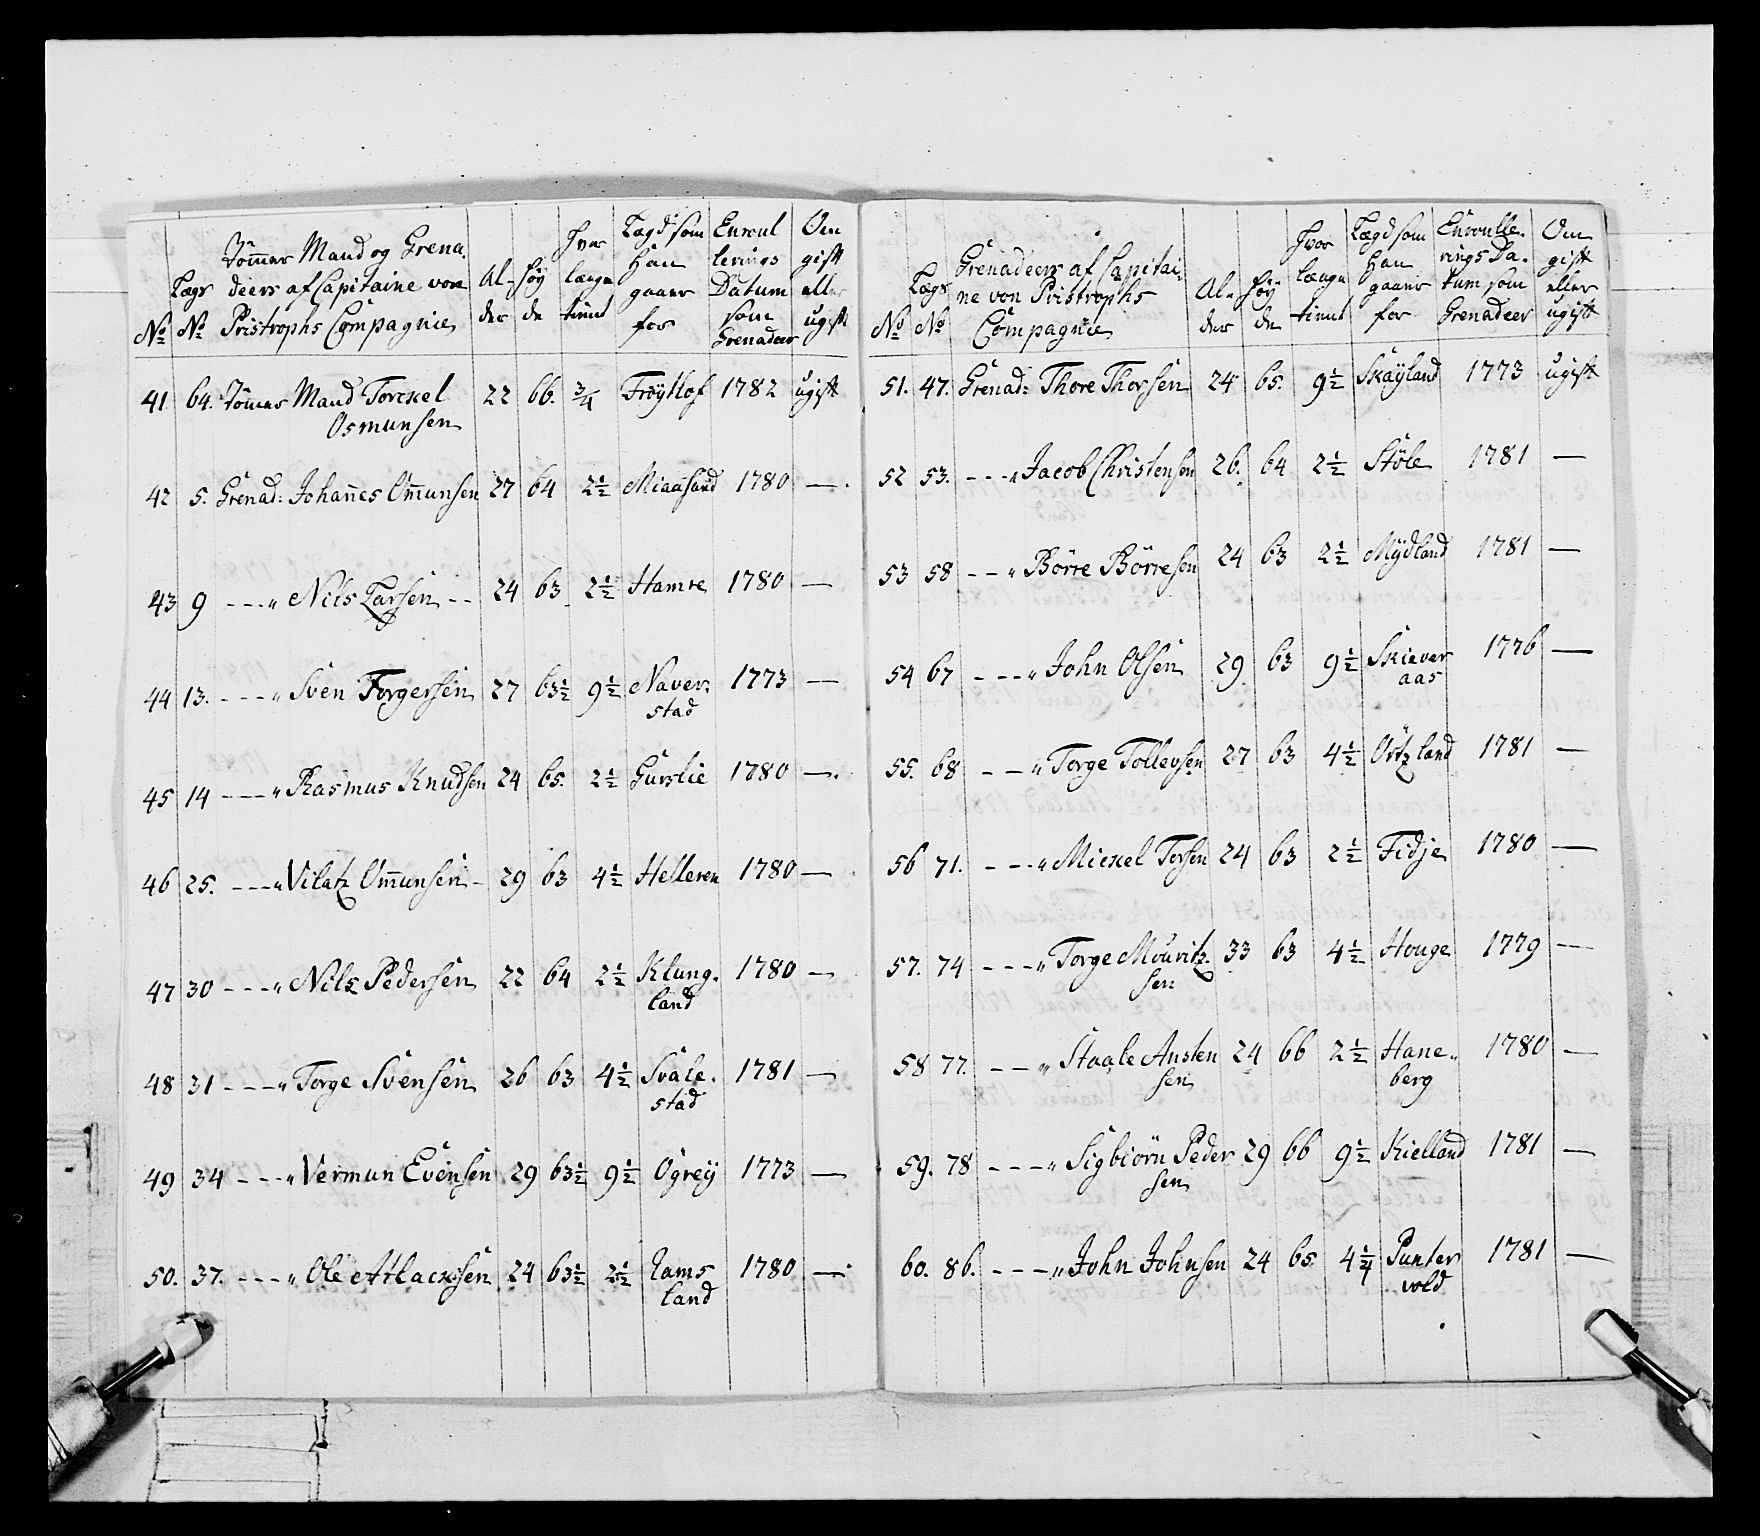 No | Lægs No | Tömmer Mand og Grenadeers af Capitaine von Pristrophs Compagnie | Alder | Höyde | hvor længe tient | Lægd som Han gaaer for | Enroulerings Datum som Grenadeer | Om gift eller ugift
41 64. Tömer Mand Torckel 22 66. 3/4 Fröytlof 1782 ugift
Osmunsen
42 5. Grenad: Johannes Ommunsen 27 64 2 1/2 Miaasund 1780 —.
43 9 - - - „ Nils Larsen - - 24 63 2 1/2 Hamre 1780 —
44 13. - - - „ Sven Torgersen 27 63 1/2 9 1/2 Naver-
stad 1773 —
45 14 - - - „ Rasmus Knudsen 24 65. 2 1/2 Gurslie 1780 —.
46 25. - - - „ Vilatz Ommunsen - 29 63 4 1/2 Helleren 1780 —
47 30 - - - „ Nils Pedersen 22 64 2 1/2 Klung-
land 1780 —
48 31 - - - „ Torge Svensen 26 63 4 1/2 Svale-
stad 1781 —
49 34 - - - „ Vermun Evensen 29 63 1/2 9 1/2 Ögreÿ 1773 —
50. 37. - - - „ Ole Atlacksen 24 63 1/2 2 1/2 Lams
land 1780 —
No | Lægs No | Grenadeers af Capitaine von Pristrophs Compagnie | Alder | Höyde | hvor længe tient | Lægd som Han gaaer for | Enroullerings Datum som Grenadeer | Om gift eller ugift
51. 47. Grenad: Thore Thorsen 24 65. 9 1/2 Skaÿland 1773 ugift
52 53. - - - „ Jacob Christensen 26. 64 2 1/2 Stöle 1781 —
53 58 - - „ Börre Börresen 24 63 2 1/2 Mÿdland 1781 —
54 67 - - - „ John Olsen 29 63 9 1/2 Skiever
aas 1776 —
55. 68 - - „ Torge Tollevsen 27 63 4 1/2 Östzland 1781 —
56 71. - - - „ Mickel Torsen 24 63 2 1/2 Fidje 1780 —
57. 74 - - - „ Torge Mouritz-
sen 33 63 4 1/2 Houge 1779 —
58 77. - - „ Staale Ansten
sen 24 66 2 1/2 Hane-
berg 1780 —
59. 78 - - - „ Sigbiörn Peder
sen 29 66 9 1/2 Kielland 1781 —
60. 86. - - - „ John Johnsen 24 65 4 1/4 Punter
vold 1781 —